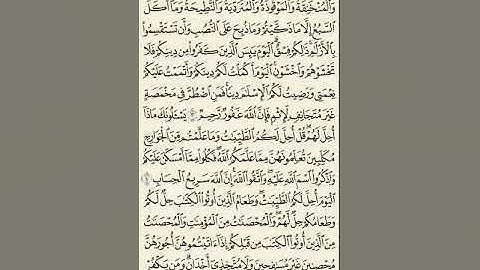 وَٱلْمُنْخَنِقَةُ وَٱلْمَوْقُوذَةُ وَٱلْمُتَرَدِّيَةُ وَٱلنَّطِيحَةُ وَمَآ أَكَلَ
ٱلسَّبُعُ إِلَّا مَا ذَكَّيْتُمْ وَمَا ذُبِحَ عَلَى ٱلنُّصُبِ وَأَن تَسْتَقْسِمُوا۟
بِٱلْأَزْلَٰمِ ۚ ذَٰلِكُمْ فِسْقٌ ۗ ٱلْيَوْمَ يَئِسَ ٱلَّذِينَ كَفَرُوا۟ مِن دِينِكُمْ فَلَا
تَخْشَوْهُمْ وَٱخْشَوْنِ ۚ ٱلْيَوْمَ أَكْمَلْتُ لَكُمْ دِينَكُمْ وَأَتْمَمْتُ عَلَيْكُمْ
نِعْمَتِى وَرَضِيتُ لَكُمُ ٱلْإِسْلَٰمَ دِينًا ۚ فَمَنِ ٱضْطُرَّ فِى مَخْمَصَةٍ
غَيْرَ مُتَجَانِفٍ لِّإِثْمٍ ۙ فَإِنَّ ٱللَّهَ غَفُورٌ رَّحِيمٌ ٣ يَسْـَٔلُونَكَ مَاذَآ
أُحِلَّ لَهُمْ ۖ قُلْ أُحِلَّ لَكُمُ ٱلطَّيِّبَٰتُ ۙ وَمَا عَلَّمْتُم مِّنَ ٱلْجَوَارِحِ
مُكَلِّبِينَ تُعَلِّمُونَهُنَّ مِمَّا عَلَّمَكُمُ ٱللَّهُ ۖ فَكُلُوا۟ مِمَّآ أَمْسَكْنَ عَلَيْكُمْ
وَٱذْكُرُوا۟ ٱسْمَ ٱللَّهِ عَلَيْهِ ۖ وَٱتَّقُوا۟ ٱللَّهَ ۚ إِنَّ ٱللَّهَ سَرِيعُ ٱلْحِسَابِ ٤
ٱلْيَوْمَ أُحِلَّ لَكُمُ ٱلطَّيِّبَٰتُ ۖ وَطَعَامُ ٱلَّذِينَ أُوتُوا۟ ٱلْكِتَٰبَ حِلٌّ لَّكُمْ
وَطَعَامُكُمْ حِلٌّ لَّهُمْ ۖ وَٱلْمُحْصَنَٰتُ مِنَ ٱلْمُؤْمِنَٰتِ وَٱلْمُحْصَنَٰتُ
مِنَ ٱلَّذِينَ أُوتُوا۟ ٱلْكِتَٰبَ مِن قَبْلِكُمْ إِذَآ ءَاتَيْتُمُوهُنَّ أُجُورَهُنَّ
مُحْصِنِينَ غَيْرَ مُسَٰفِحِينَ وَلَا مُتَّخِذِىٓ أَخْدَانٍ ۗ وَمَن يَكْفُرْ